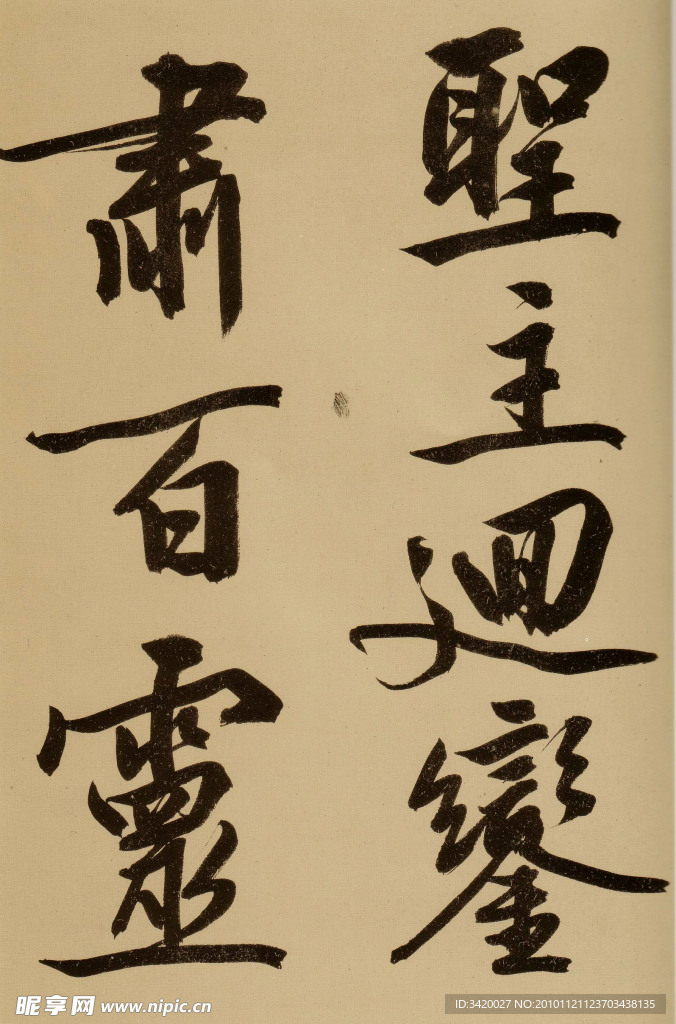 聖主迴鑾
肅百靈
昵享网 www.nipic.cn
ID:3420027 NO:20101121123703438135